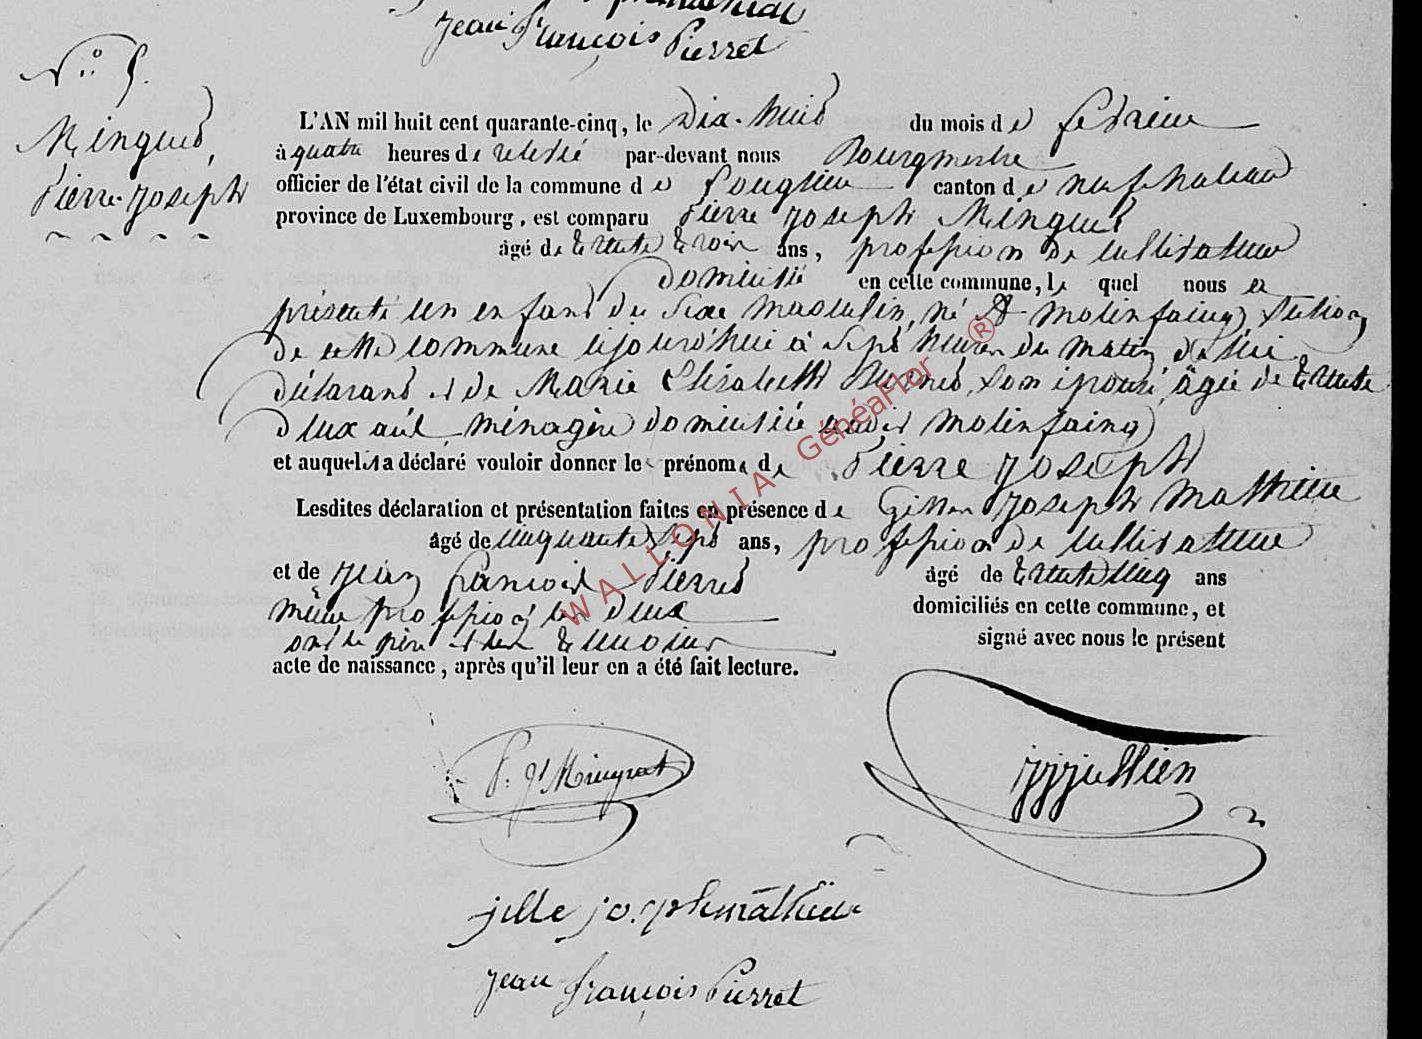 Jean François Pierret
N.° 5.
Minguet,
Pierre-Joseph
L'AN mil huit cent quarante-cinq, le Dix-huit du mois de février
à quatre heures de relevée par-devant nous Bourgmestre
officier de l'état civil de la commune de canton de neufchateau
province de Luxembourg, est comparu Pierre Joseph Minguet
âgé de trente trois ans, profession de cultivateur
domicilié en cette commune, le quel nous a
présenté un enfant du sexe masculin, né à molinfaing, section
de cette commune cejourd'hui à sept heures du matin de lui
déclarant et de Marie Elisabeth son épouse, âgée de trente
deux ans, ménagère domiciliée molinfaing
et auquel il a déclaré vouloir donner le prénom de Pierre Joseph
Lesdites déclaration et présentation faites en présence de Joseph Mathieu
âgé de cinquante sept ans, profession de cultivateur
et de Jean François Pierret âgé de trente cinq ans
même profession les deux domiciliés en cette commune, et
ont le père et les témoins signé avec nous le présent
acte de naissance, après qu'il leur en a été fait lecture.
P. J. Minguet
jjjullien
jille josephmathieu
Jean françois Pierret
WALLONIA GénéaFlor ®